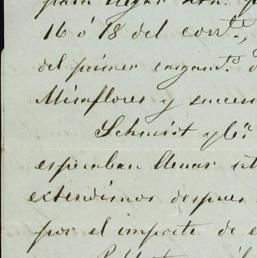 para llegar
16 ó 18 del corrte,
del primer cargamto.
Miraflores y
Schmidt y Ca.
esperaban llenar
extendimos despues
por el importe de